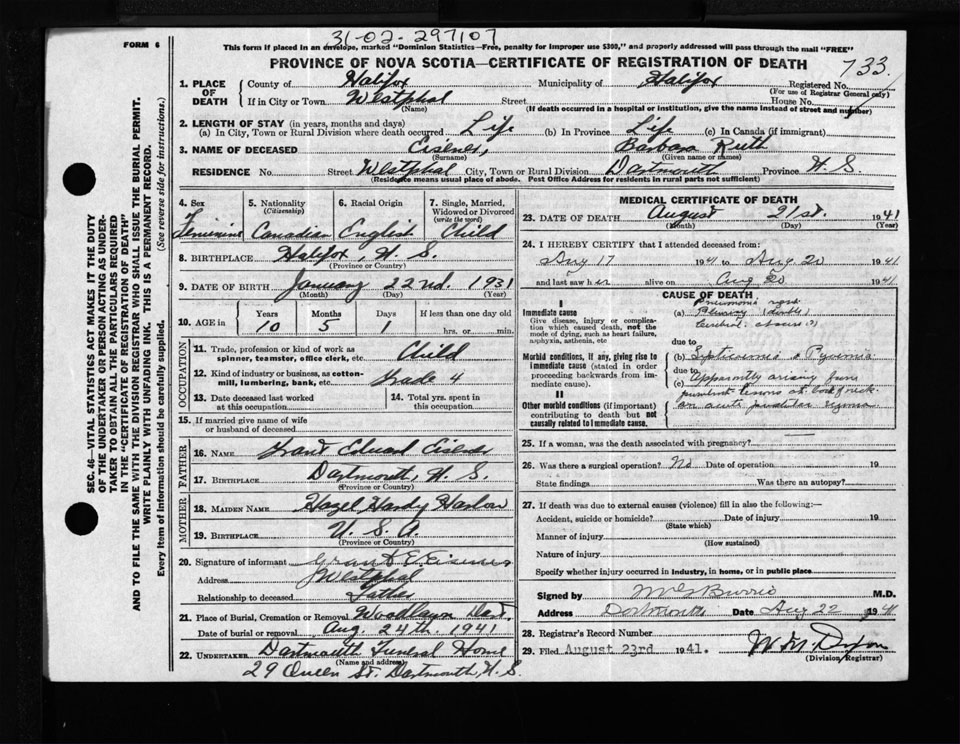 31-02-297107
FORM 6
This form if placed in an envelope, marked "Dominion Statistics—Free, penalty for improper use $300," and properly addressed will pass through the mail "FREE"
PROVINCE OF NOVA SCOTIA—CERTIFICATE OF REGISTRATION OF DEATH
733
1. PLACE OF DEATH County of Halifax Municipality of Halifax Registered No.
(For use of Registrar General only)
If in City or Town Westphal Street House No.
(Name) (If death occurred in a hospital or institution, give the name instead of street and number)
2. LENGTH OF STAY (in years, months and days)
(a) In City, Town or Rural Division where death occurred Life (b) In Province Life (c) In Canada (if immigrant)
3. NAME OF DECEASED Eisener, Barbara Ruth
(Surname) (Given name or names)
RESIDENCE No. Street Westphal City, Town or Rural Division Dartmouth Province N. S.
(Residence means usual place of abode. Post Office Address for residents in rural parts not sufficient)
4. Sex 5. Nationality (Citizenship) 6. Racial Origin 7. Single, Married, Widowed or Divorced (write the word)
Feminine Canadian English Child
8. BIRTHPLACE Halifax, N. S.
(Province or Country)
9. DATE OF BIRTH January 22nd. 1931
(Month) (Day) (Year)
10. AGE in Years Months Days If less than one day
10 5 1 hrs. or min.
OCCUPATION
11. Trade, profession or kind of work as spinner, teamster, office clerk, etc. Child
12. Kind of industry or business, as cotton-mill, lumbering, bank, etc. Grade 4
13. Date deceased last worked at this occupation
14. Total yrs. spent in this occupation
15. If married give name of wife or husband of deceased
FATHER
16. NAME Grant Edward Eisener
17. BIRTHPLACE Dartmouth, N. S.
(Province or Country)
MOTHER
18. MAIDEN NAME Hazel Hardy Harlow
19. BIRTHPLACE U. S. A.
(Province or Country)
20. Signature of informant Grant E. Eisener
Address Westphal
Relationship to deceased Father
21. Place of Burial, Cremation or Removal Woodlawn Dart.
Date of burial or removal Aug. 24th. 1941
22. UNDERTAKER Dartmouth Funeral Home
(Name and address)
29 Queen St. Dartmouth, N. S.
MEDICAL CERTIFICATE OF DEATH
23. DATE OF DEATH August 21st. 1941
(Month) (Day) (Year)
24. I HEREBY CERTIFY that I attended deceased from:
Aug 17 1941 to Aug 20 1941
and last saw her alive on Aug 20 1941
CAUSE OF DEATH
I
Immediate cause
Give disease, injury or complication which caused death, not the mode of dying, such as heart failure, asphyxia, asthenia, etc
(a) Pneumonia
Pleurisy (double)
Cerebral abscess
due to
Morbid conditions, if any, giving rise to immediate cause (stated in order proceeding backwards from immediate cause).
(b) Septicemia & Pyemia
due to
(c) Apparently arising from
purulent lesions at back of neck
II
Other morbid conditions (if important) contributing to death but not causally related to immediate cause.
an acute pustular
25. If a woman, was the death associated with pregnancy?
26. Was there a surgical operation? No Date of operation 19
State findings Was there an autopsy?
27. If death was due to external causes (violence) fill in also the following:—
Accident, suicide or homicide? Date of injury 19
(State which)
Manner of injury
(How sustained)
Nature of injury
Specify whether injury occurred in industry, in home, or in public place
Signed by M.D.
Address Dartmouth Date Aug 22 1941
28. Registrar's Record Number
29. Filed August 23rd 1941.
(Division Registrar)
SEC. 46—VITAL STATISTICS ACT MAKES IT THE DUTY
OF THE UNDERTAKER OR PERSON ACTING AS UNDER-
TAKER TO OBTAIN ALL THE PARTICULARS REQUIRED
IN THE "CERTIFICATE OF REGISTRATION OF DEATH"
AND TO FILE THE SAME WITH THE DIVISION REGISTRAR WHO SHALL ISSUE THE BURIAL PERMIT.
WRITE PLAINLY WITH UNFADING INK. THIS IS A PERMANENT RECORD.
Every item of information should be carefully supplied. (See reverse side for instructions.)